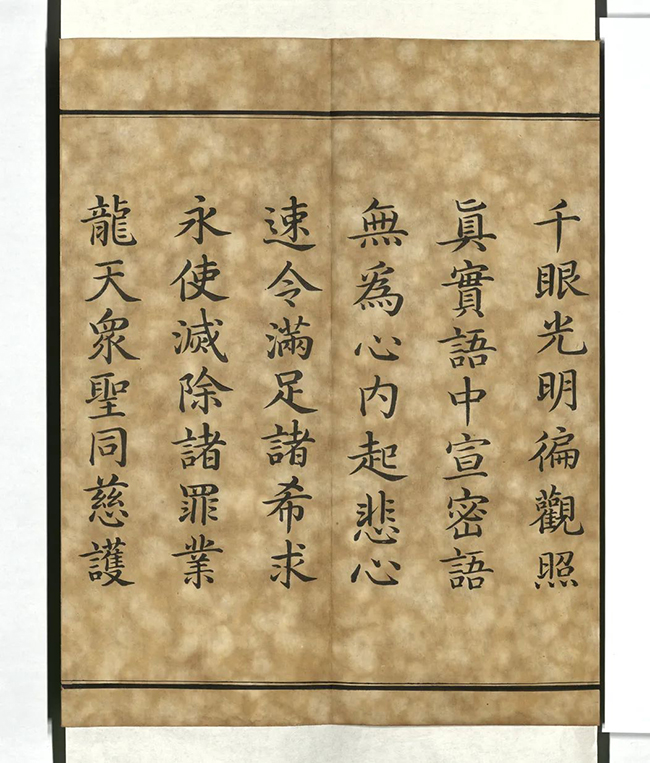 千眼光明徧觀照
眞實語中宣密語
無爲心内起悲心
速令滿足諸希求
永使滅除諸罪業
龍天衆聖同慈護